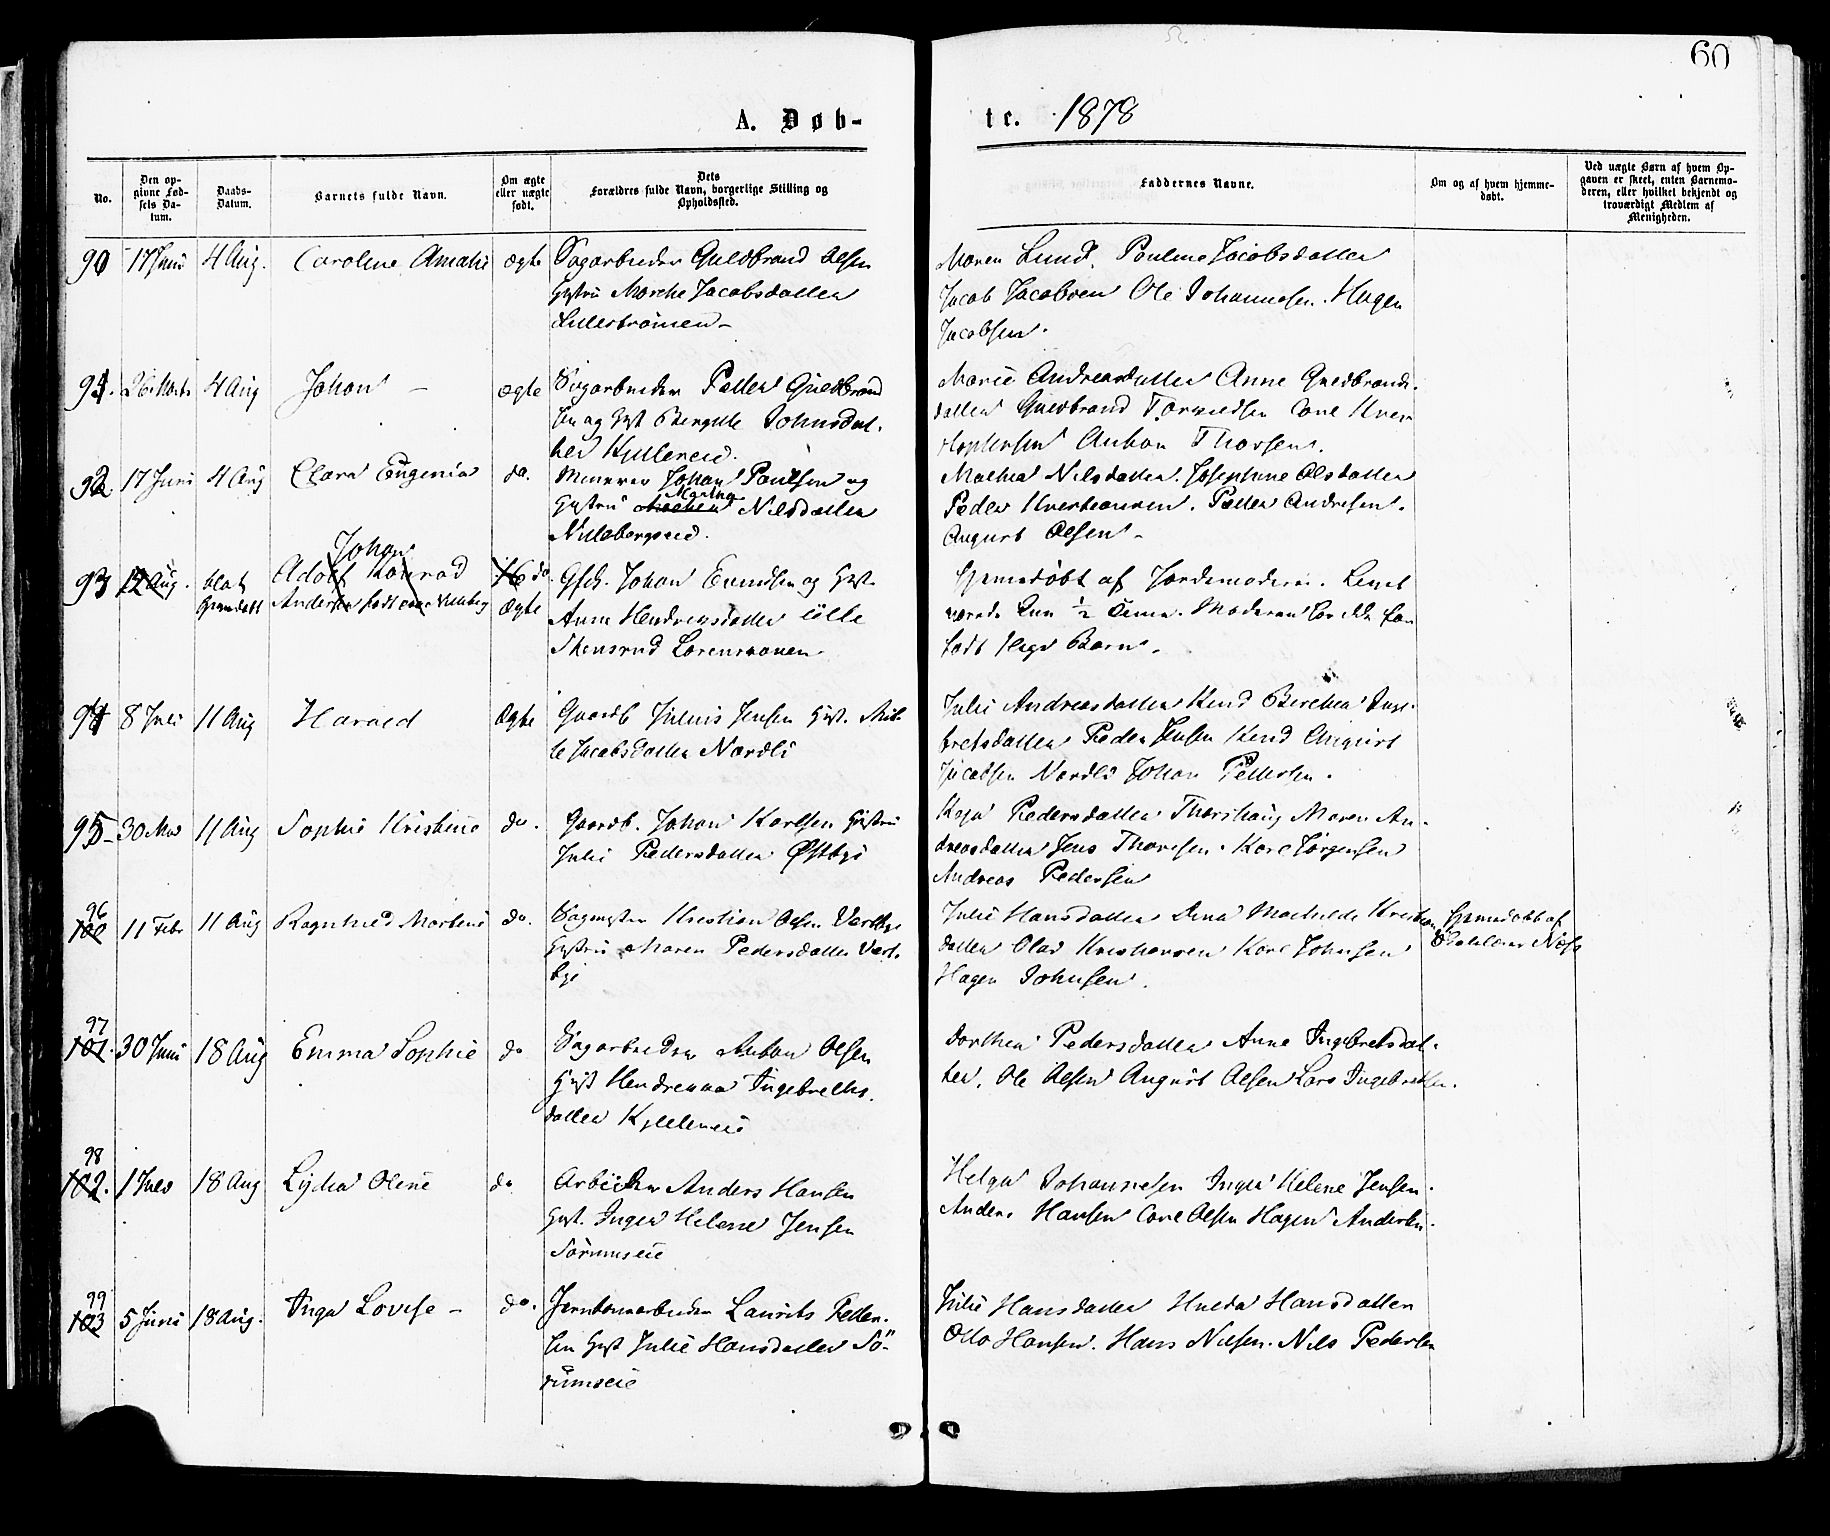 60
A. Døb-
te. 1878
No.
Den op-
givne Fød-
sels Da-
tum.
Daabs-
Datum.
Barnets fulde Navn.
Om ægte
eller uægte
født.
Dets
Forældres fulde Navn, borgerlige Stilling og
Opholdssted.
Faddernes Navne.
Om og af hvem hjemme-
døbt.
Ved uægte Børn af hvem Op-
gaven er skeet, enten Barnemo-
deren, eller hvilket bekjendt og
troværdigt Medlem af
Menigheden.
90 17 Juni 4 Aug. Caroline Amalie ægte
Sagarbeider Guldbrand Olsen
Hustru Marthe Jacobsdatter
Lillestrømen
Maren Lund. Pauline Jacobsdatter
Jacob Jacobsen Ole Johannesen. Hagen
Jacobsen.
91. 26 Marts 4 Aug Johan – ægte
Sagarbeider Petter Guldbrand
sen og Hust Bergitte Johnsdat-
ter
Marie Andreasdatter Anne Guldbrands-
datter Guldbrand Carl Kri
Anton Thorsen.
92. 17 Juni 4 Aug Clara Eugenia do.
Johan Paulsen og
Hustru Marina Nilsdatter
Mathea Nilsdatter. Josephine Olsdatter
Peder Kristiansen. Petter Andresen.
August Olsen –
93 12 Aug. blot
Johan
Adolf Konrad
do.
Ægte
Johan Evindsen og Hust.
Anne Hendreksdatter
Hjemmedøbt af Jordemoderen. Levet
kun 1/2 Time. Moderen har
født Børn.
94 8 Juli 11 Aug Harald Ægte
Gaardb Julius Jensen Hust.
Jacobsdatter Nordli
Julie Andreasdatter Berthea Inge-
bretsdatter Peder Jensen August
Jacobsen Nordli Johan Pettersen.
95 – 30 Mai 11 Aug Sophie Kristine do.
Gaardb. Johan Karlsen Hustru
Julie Pedersdatter Østbye
Kaja Pedersdatter Thorshaug Maren An-
dreasdatter Jens Thoresen. Karl Jørgensen
Andreas Pedersen
96
100 11 Febr 11 Aug Ragnhild Martine do.
Kristian Olsen
Hustru Maren Pedersdatter
Julie Hansdatter Dina Mathilde Kristians
datter Olav Kristiansen Karl Johnsen
Hagen Johnsen.
Hjemmedøbt af
Næss
97
101. 30 Juni 18 Aug Emma Sophie do
Sagarbeider Anton Olsen
Hust Hendrekka Ingebrethsdatter
Dorthea Pedersdatter Anne Ingebretsdat-
ter. Ole Olsen August Olsen Lars Ingebretsen.
98
102. 1 18 Aug Lydia Oline do
Arbeider Anders Hansen
Hust. Inger Helene Jensen
Sørumseie
Helga Johannesen Inger Helene Jensen.
Anders Hansen Carl Olsen Hagen Andersen.
99
103 5 Juni 18 Aug. Inga Lovise – do.
Jernbanearbeider Laurits Petter-
sen Hust Julie Hansdatter Sø-
rumseie
Julie Hansdatter Hulda Hansdatter
Otto Hansen. Hans Nilsen. Nils Pedersen